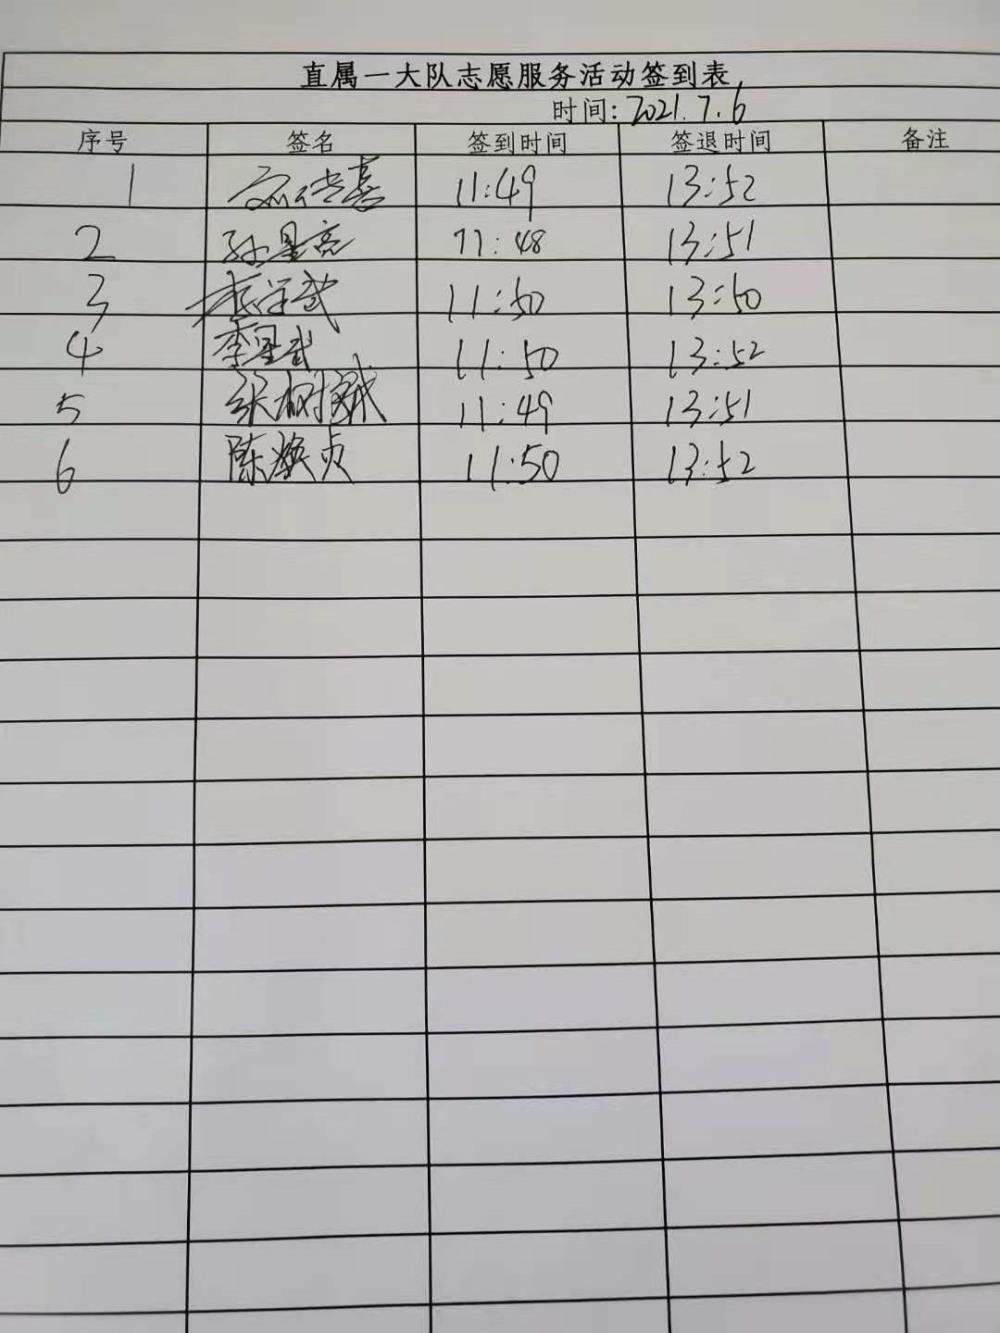 直属一大队志愿服务活动签到表
时间:2021.7.6
序号 签名 签到时间 签退时间 备注
1 11:49 13:52
2 孙星亮 11:48 13:51
3 11:50 13:50
4 李星武 11:50 13:52
5 张树斌 11:49 13:51
6 陈焕贞 11:50 13:52